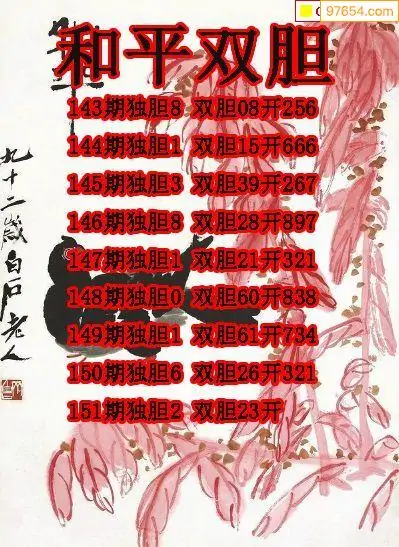 97654.com
和平双胆
143期独胆8 双胆08开256
144期独胆1 双胆15开666
145期独胆3 双胆39开267
146期独胆8 双胆28开897
147期独胆1 双胆21开321
148期独胆0 双胆60开838
149期独胆1 双胆61开734
150期独胆6 双胆26开321
151期独胆2 双胆23开
九十二歲白石老人